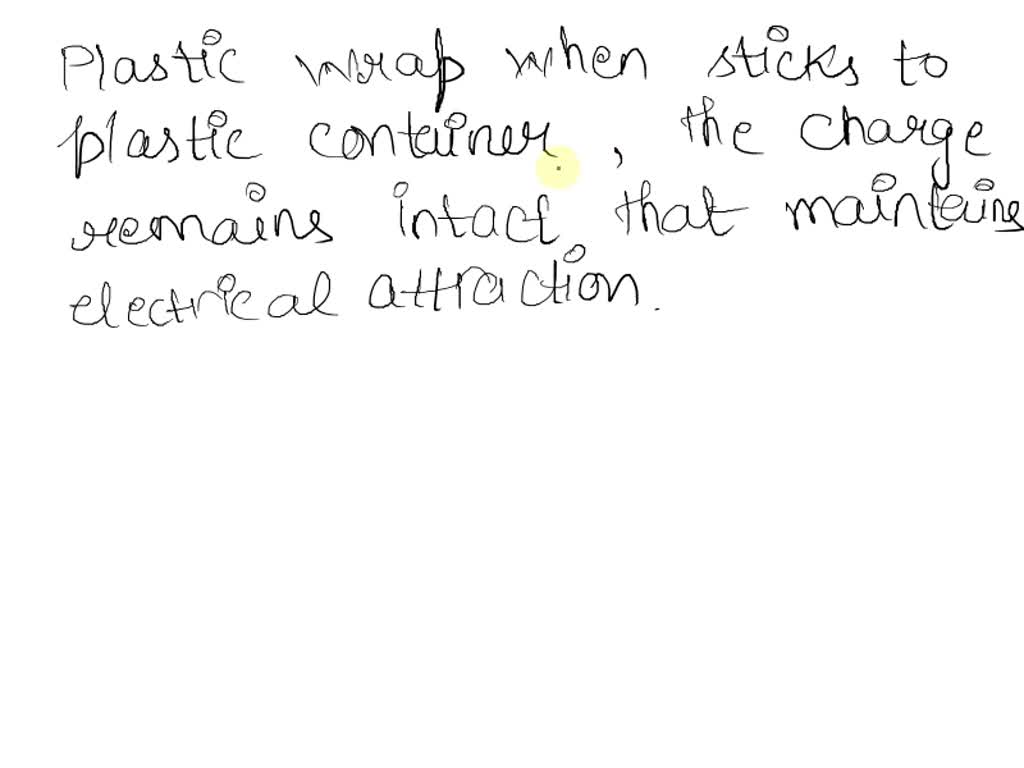 Plastic wrap when sticks to
plastic container, the charge
remains intact that maintains
electrical attraction.